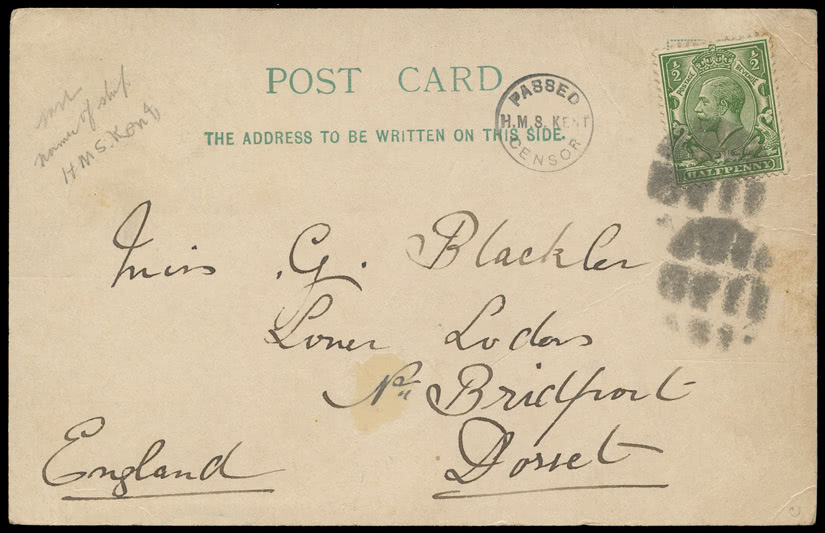 POST CARD
THE ADDRESS TO BE WRITTEN ON THIS SIDE.
name of ship
H.M.S. Kent
PASSED
H.M.S. KENT
CENSOR
½ ½
POSTAGE REVENUE
HALFPENNY
Miss G. Blackler
Loner Loders
Nr Bridport
Dorset
England